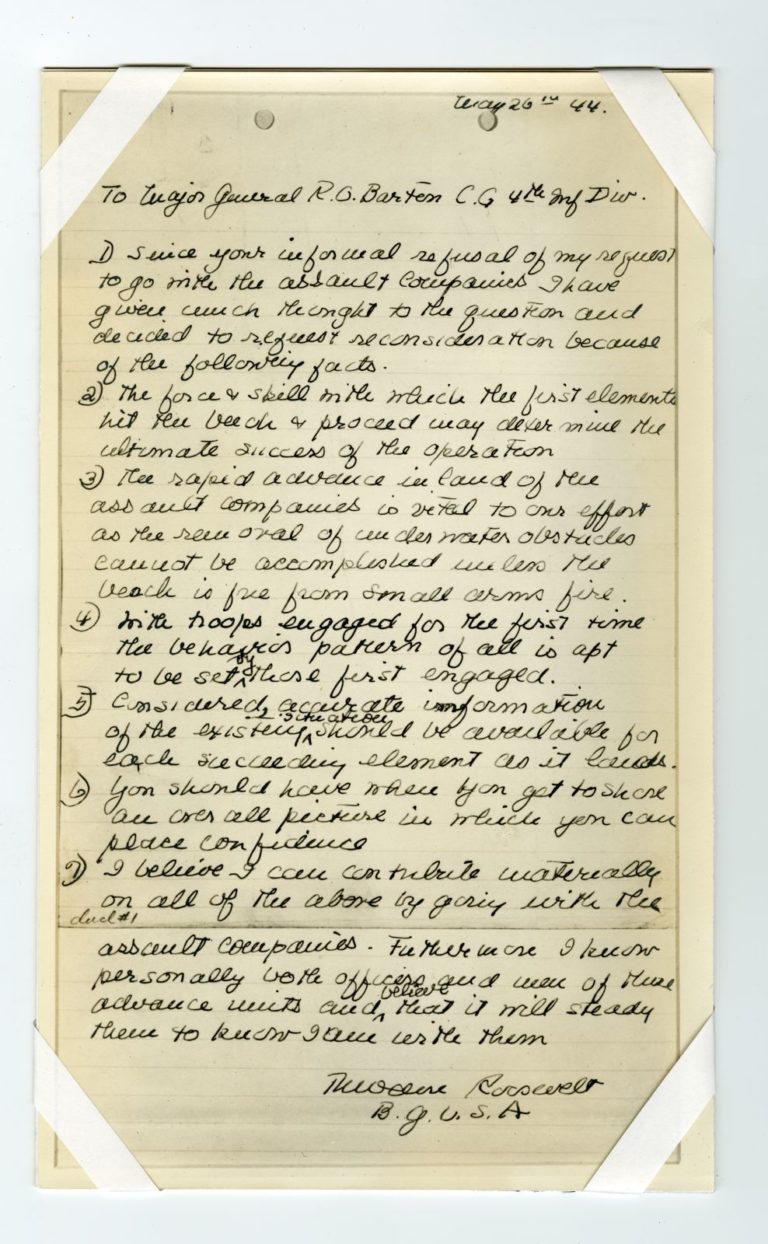 May 26th 44.
To Major General R.O. Barton C.G. 4th Inf Div.
1) Since your informal refusal of my request
to go with the assault companies I have
given much thought to the question and
decided to request reconsideration because
of the following facts.
2) The force & skill with which the first elements
hit the beach & proceed may determine the
ultimate success of the operation
3) The rapid advance inland of the
assault companies is vital to our effort
as the removal of underwater obstacles
cannot be accomplished unless the
beach is free from small arms fire.
4) With troops engaged for the first time
the behavior pattern of all is apt
to be set by those first engaged.
5) Considered, accurate information
of the existing situation should be available for
each succeeding element as it lands.
6) You should have when you get to shore
an over all picture in which you can
place confidence
7) I believe I can contribute materially
on all of the above by going with the
assault companies. Futhermore I know
personally both officers and men of these
advance units and believe that it will steady
them to know I am with them
Theodore Roosevelt
B.G. U.S.A